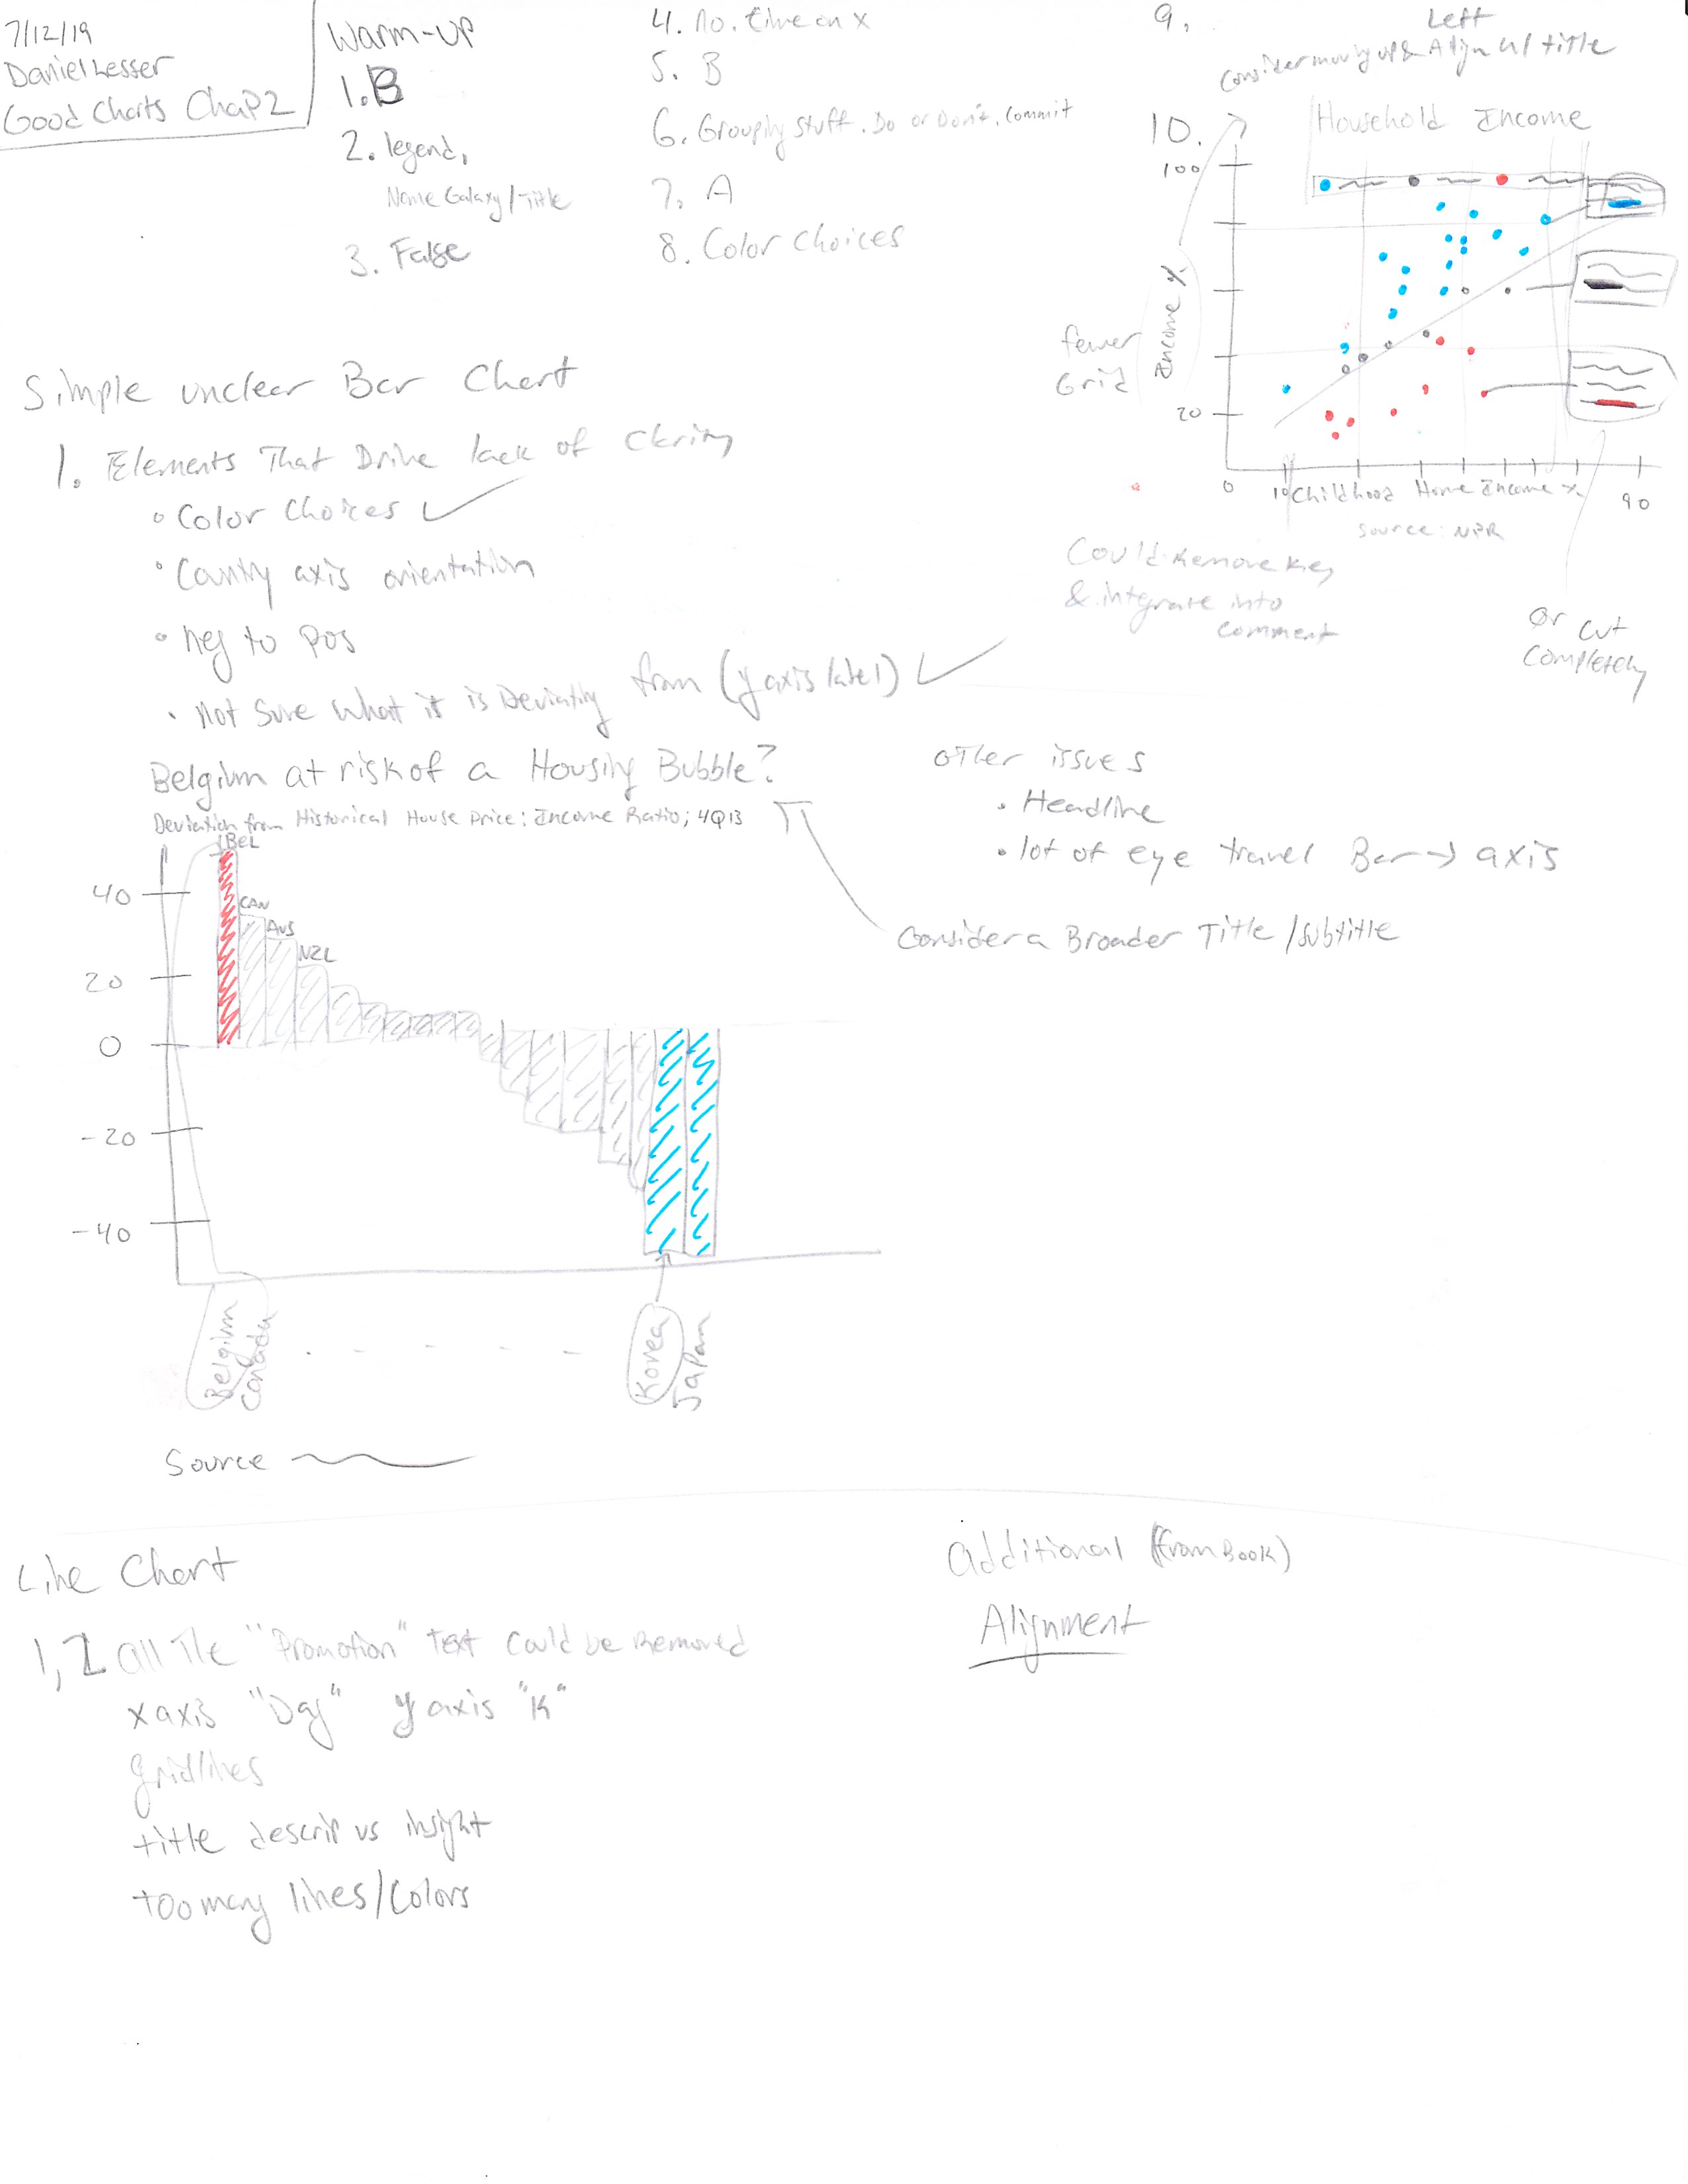 7/12/19
Daniel Lesser
Good Charts Chap 2
Warm-up
1. B
2. legend,
Name Galaxy/Title
3. False
4. no. time on x
5. B
6. Grouping stuff. Do or Don't. Commit
7. A
8. Color Choices
9. Left
Consider moving up & Align w/ title
10.
Household Income
100
Income %
20
0
10
Childhood Home Income %
90
Source: NPR
fewer
Grid
Could Remove key
& integrate into
comment
or cut
completely
Simple unclear Bar Chart
1. Elements That Drive lack of Clarity
• Color Choices ✓
• Country axis orientation
• neg to pos
• Not Sure what it is Deviating from (y axis label) ✓
Belgium at risk of a Housing Bubble?
Deviation from Historical House Price: Income Ratio; 4Q13
BEL
CAN
AUS
NZL
40
20
0
-20
-40
Belgium
Canada
Korea
Japan
Source
other issues
• Headline
• lot of eye travel Bar → axis
Consider a Broader Title/subtitle
Line Chart
1, 2 all The "Promotion" Text Could be Removed
x axis "Day" y axis "K"
gridlines
title descrip vs insight
too many lines/Colors
Additional (From Book)
Alignment